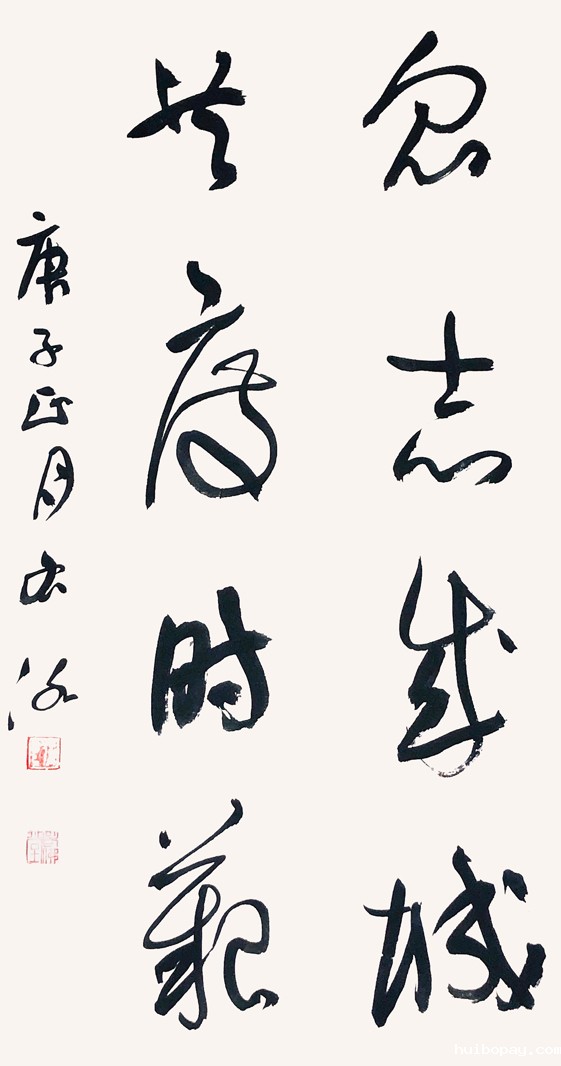 众志成城
共度时艰
庚子正月
huibopay.com